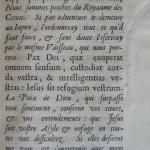 Nous sommes proches du Royaume des
Cieux. Si par adventure ie demeure
au Iapon, i'ordonneray tout ce qu'il
faut faire, & sans doute i'escriray
par le mesme Vaisseau, qui nous por-
tera. PAX DEI, quæ exuperat
omnem sensum, custodiat cor-
da vestra, & intelligentias ve-
stras: Iesus sit refugium vestrum.
La Paix de Dieu, qui surpasse
tout sentiment, conserue vos cœurs,
& vos entendements: que Iesus
soit vostre Asyle & refuge en tou-
tes vos difficultez. Si elles desirent